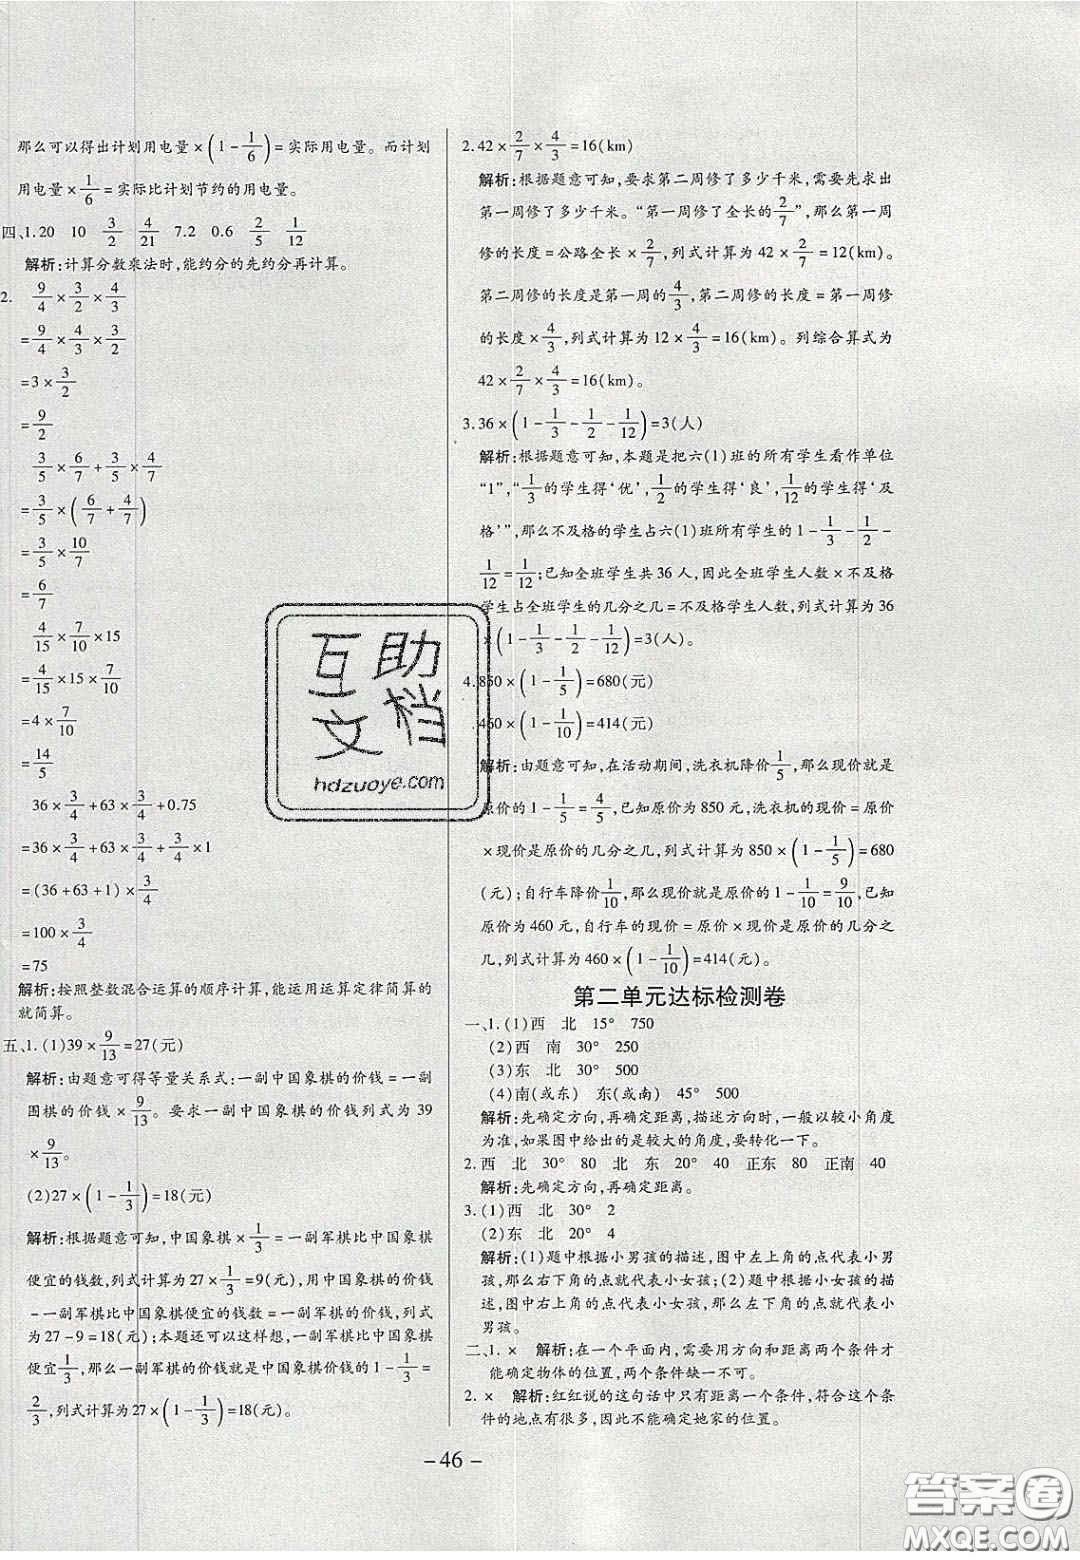 那么可以得出计划用电量×(1-1/6)=实际用电量。而计划
用电量×1/6=实际比计划节约的用电量。
四、1.20 10 3/2 4/21 7.2 0.6 2/5 1/12
解析:计算分数乘法时,能约分的先约分再计算。
2. 9/4×3/2×4/3
=9/4×4/3×3/2
=3×3/2
=9/2
3/5×6/7+3/5×4/7
=3/5×(6/7+4/7)
=3/5×10/7
=6/7
4/15×7/10×15
=4/15×15×7/10
=4×7/10
=14/5
36×3/4+63×3/4+0.75
=36×3/4+63×3/4+3/4×1
=(36+63+1)×3/4
=100×3/4
=75
解析:按照整数混合运算的顺序计算,能运用运算定律简算的
就简算。
五、1.(1)39×9/13=27(元)
解析:由题意可得等量关系式:一副中国象棋的价钱=一副
围棋的价钱×9/13。要求一副中国象棋的价钱列式为 39
×9/13。
(2)27×(1-1/3)=18(元)
解析:根据题意可知,中国象棋×1/3=一副军棋比中国象棋
便宜的钱数,列式计算为27×1/3=9(元),用中国象棋的价钱
-一副军棋比中国象棋便宜的钱数=一副军棋的价钱,列式
为27-9=18(元);本题还可以这样想,一副军棋比中国象棋
便宜1/3,那么一副军棋的价钱就是中国象棋价钱的1-1/3=
2/3,列式计算为27×(1-1/3)=18(元)。
2.42×2/7×4/3=16(km)
解析:根据题意可知,要求第二周修了多少千米,需要先求出
第一周修了多少千米。“第一周修了全长的2/7”,那么第一周
修的长度=公路全长×2/7,列式计算为 42×2/7=12(km)。
第二周修的长度是第一周的4/3,第二周修的长度=第一周修
的长度×4/3,列式计算为 12×4/3=16(km)。列综合算式为
42×2/7×4/3=16(km)。
3.36×(1-1/3-1/2-1/12)=3(人)
解析:根据题意可知,本题是把六(1)班的所有学生看作单位
“1”,“1/3的学生得‘优’,1/2的学生得‘良’,1/12的学生得‘及
格’”,那么不及格的学生占六(1)班所有学生的1-1/3-1/2-
1/12=1/12;已知全班学生共36人,因此全班学生人数×不及格
学生占全班学生的几分之几=不及格学生人数,列式计算为36
×(1-1/3-1/2-1/12)=3(人)。
4.850×(1-1/5)=680(元)
460×(1-1/10)=414(元)
解析:由题意可知,在活动期间,洗衣机降价1/5,那么现价就是
原价的1-1/5=4/5,已知原价为850元,洗衣机的现价=原价
×现价是原价的几分之几,列式计算为 850×(1-1/5)=680
(元);自行车降价1/10,那么现价就是原价的1-1/10=9/10,已知
原价为460元,自行车的现价=原价×现价是原价的几分之
几,列式计算为460×(1-1/10)=414(元)。
第二单元达标检测卷
一、1.(1)西 北 15° 750
(2)西 南 30° 250
(3)东 北 30° 500
(4)南(或东) 东(或南) 45° 500
解析:先确定方向,再确定距离,描述方向时,一般以较小角度
为准,如果图中给出的是较大的角度,要转化一下。
2.西 北 30° 80 北 东 20° 40 正东 80 正南 40
解析:先确定方向,再确定距离。
3.(1)西 北 30° 2
(2)东 北 20° 4
解析:(1)题中根据小男孩的描述,图中左上角的点代表小男
孩,那么右下角的点就代表小女孩;(2)题中根据小女孩的描
述,图中右上角的点代表小女孩,那么左下角的点就代表小
男孩。
二、1.× 解析:在一个平面内,需要用方向和距离两个条件才
能确定物体的位置,两个条件缺一不可。
2.× 解析:红红说的这句话中只有距离一个条件,符合这个条
件的地点有很多,因此不能确定她家的位置。
-46-
互助
文档
hdzuoye.com
答案圈
MXQE.COM